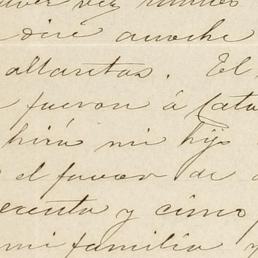 vez
dire anoche
altaretas. El
fueron á Cata
hirá mi hijo
el favor de
cuenta y cinco
mi familia y